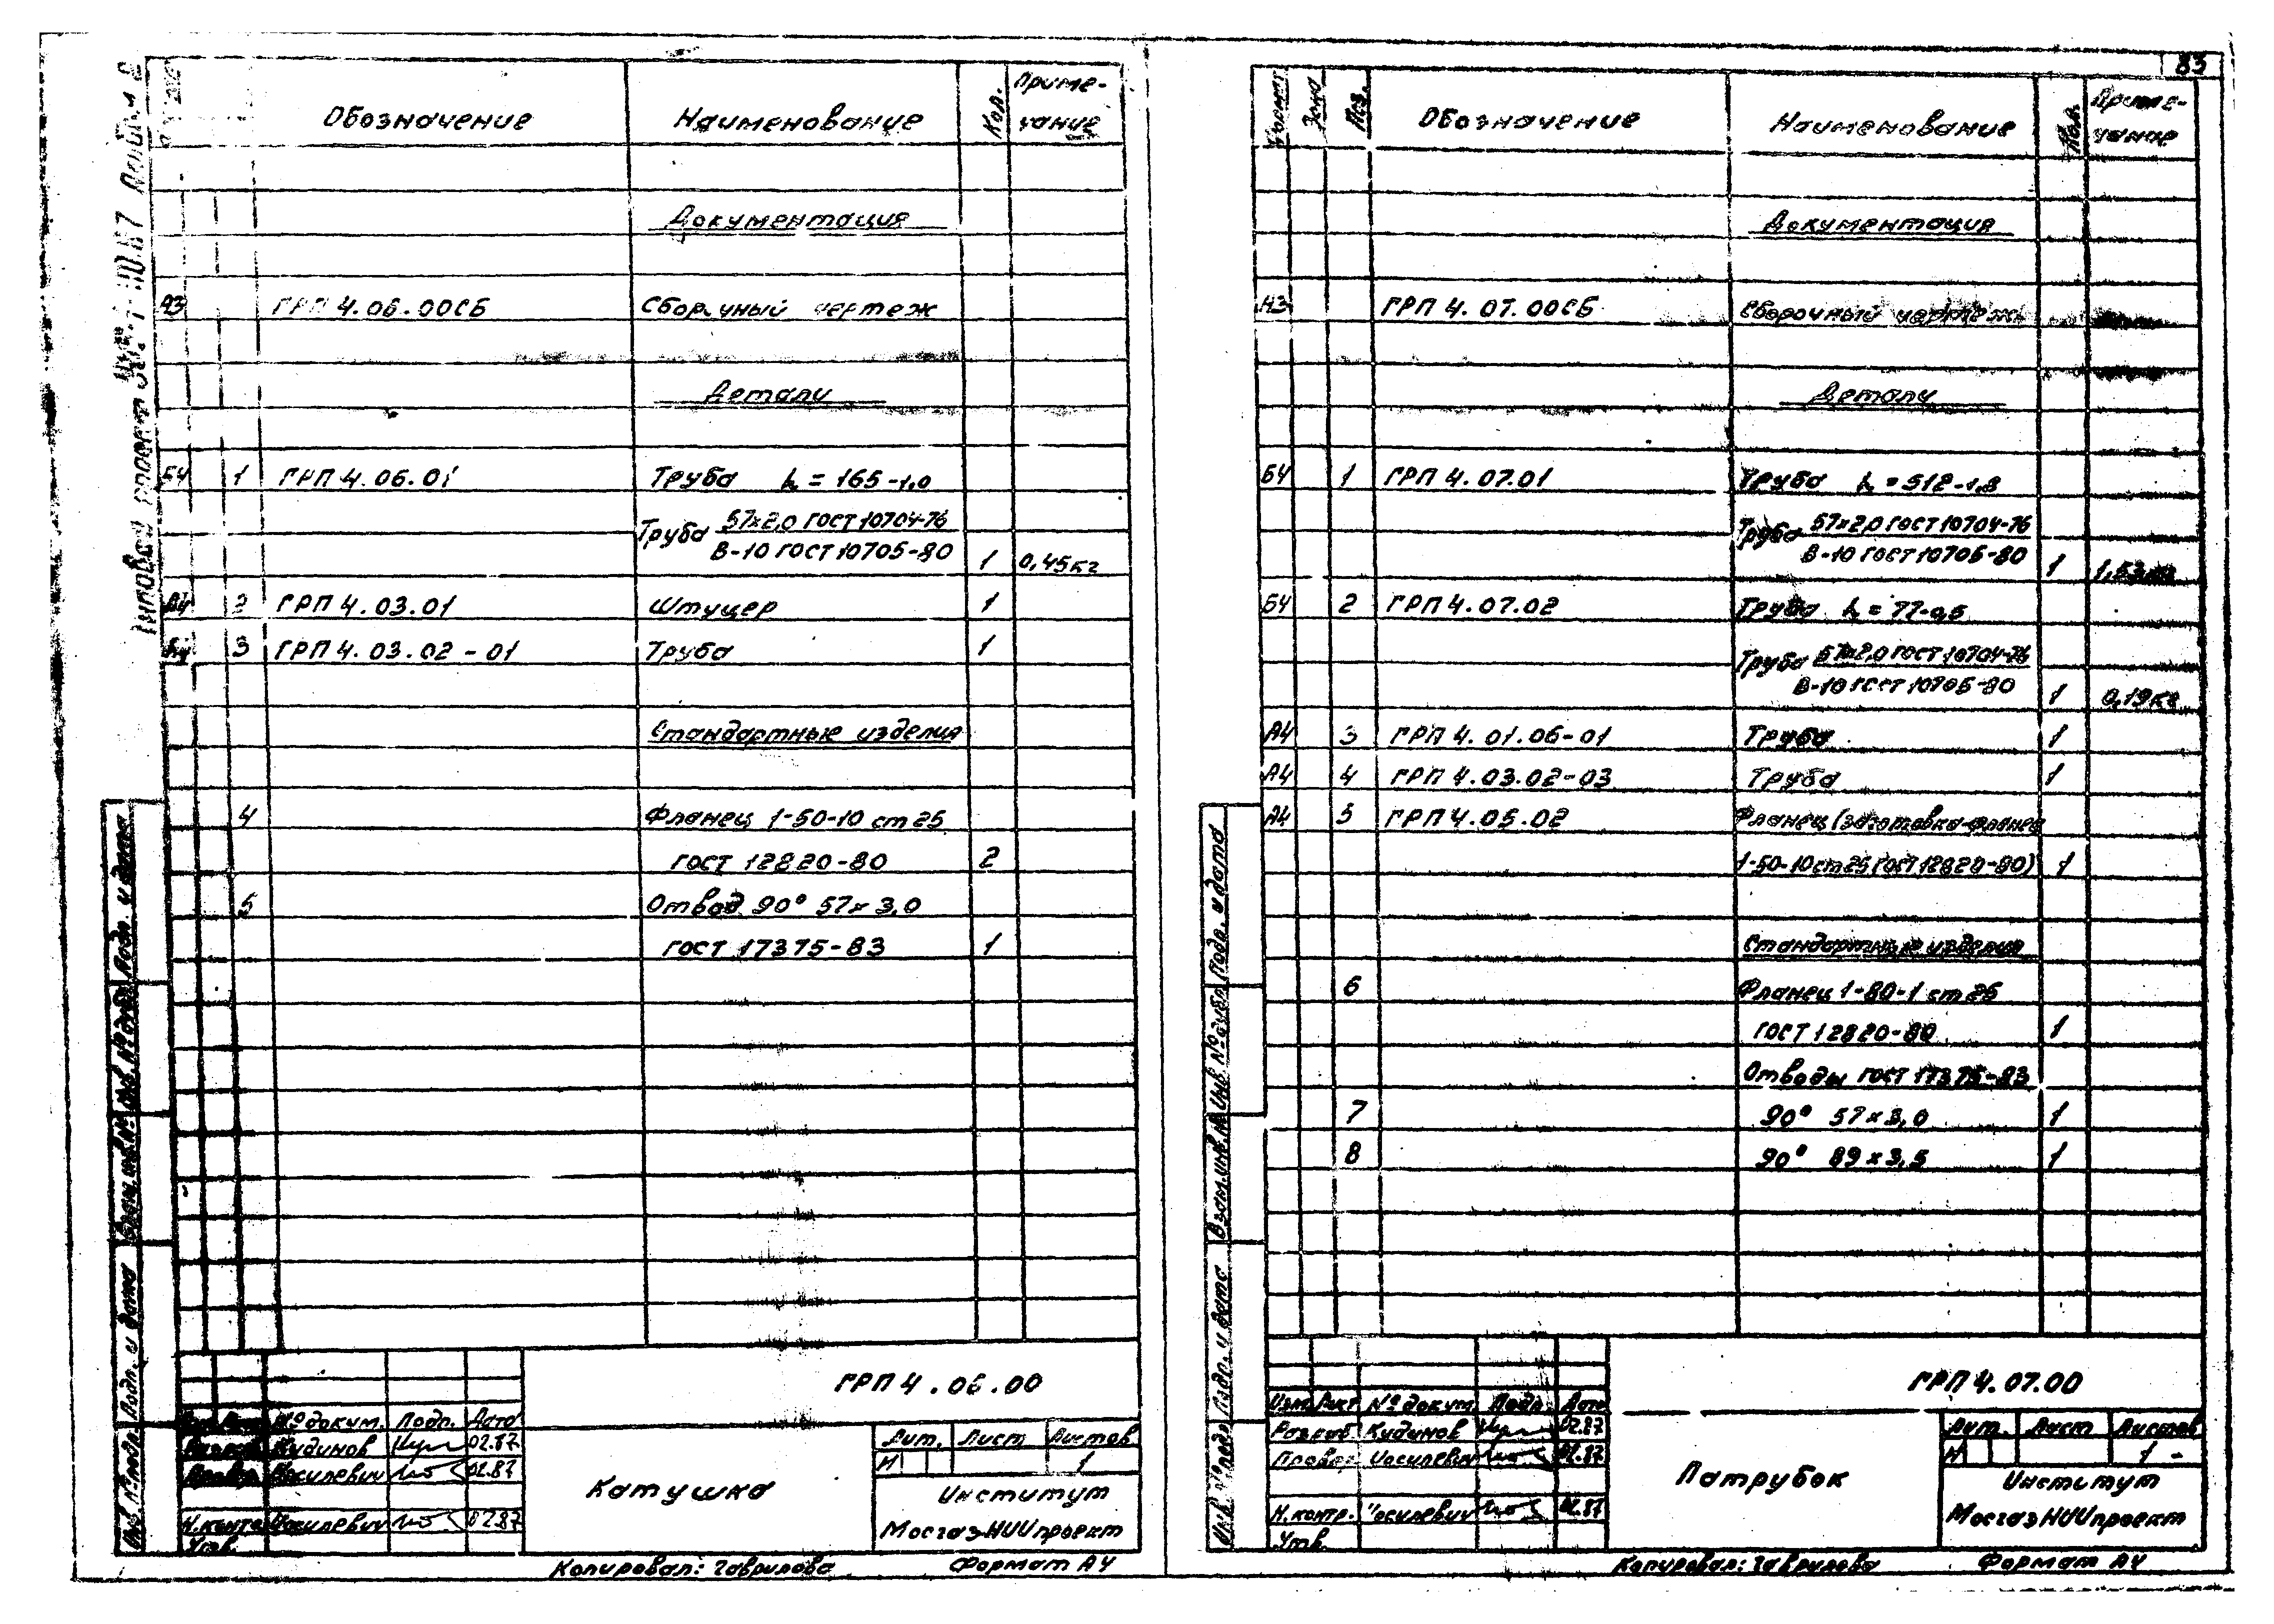 83
Обозначение Наименование Кол. Приме-
чание
Документация
А3 ГРП 4.06.00СБ Сборочный чертеж
Детали
БЧ 1 ГРП 4.06.01 Труба L = 165-1,0
Труба 57х2,0 ГОСТ 10704-76
В-10 ГОСТ 10705-80 1 0,45кг
А4 2 ГРП 4.03.01 Штуцер 1
А4 3 ГРП 4.03.02-01 Труба 1
Стандартные изделия
4 Фланец 1-50-10 ст 25
ГОСТ 12820-80 2
5 Отвод 90° 57х3,0
ГОСТ 17375-83 1
ГРП 4.06.00
№ докум. Подп. Дата
Разраб. Кудинов 02.87
Провер. Иосилевич 02.87
Н.контр. Иосилевич 02.87
Утв.
Катушка
Лит. Лист Листов
И 1
Институт
МосгазНИИпроект
Копировал: Гаврилова Формат А4
Типовой проект
Подп. и дата
Инв. № дубл.
Взам. инв. №
Подп. и дата
Инв. № подл.
Формат Зона Поз. Обозначение Наименование Кол. Приме-
чание
Документация
А3 ГРП 4.07.00СБ Сборочный чертеж
Детали
БЧ 1 ГРП 4.07.01 Труба L = 512-1,8
Труба 57х2,0 ГОСТ 10704-76
В-10 ГОСТ 10705-80 1 1,53кг
БЧ 2 ГРП 4.07.02 Труба L = 77-0,5
Труба 57х2,0 ГОСТ 10704-76
В-10 ГОСТ 10705-80 1 0,19кг
А4 3 ГРП 4.01.06-01 Труба 1
А4 4 ГРП 4.03.02-03 Труба 1
А4 5 ГРП 4.05.02 Фланец (заготовка-фланец
1-50-10 ст 25 ГОСТ 12820-80) 1
Стандартные изделия
6 Фланец 1-80-1 ст 25
ГОСТ 12820-80 1
Отводы ГОСТ 17375-83
7 90° 57х3,0 1
8 90° 89х3,5 1
ГРП 4.07.00
Изм. Лист № докум. Подп. Дата
Разраб. Кудинов 02.87
Провер. Иосилевич 02.87
Н.контр. Иосилевич 02.87
Утв.
Патрубок
Лит. Лист Листов
И 1
Институт
МосгазНИИпроект
Копировал: Гаврилова Формат А4
Подп. и дата
Инв. № дубл.
Взам. инв. №
Подп. и дата
Инв. № подл.